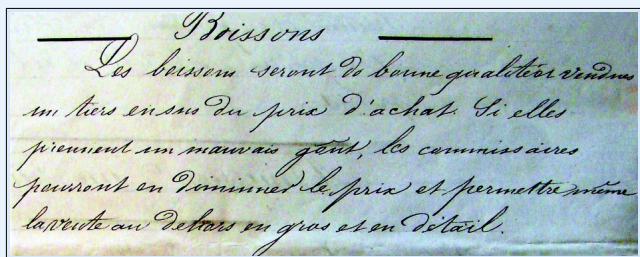 Boissons
Les boissons seront de bonne qualité et vendues
un tiers en sus du prix d'achat. Si elles
prennent un mauvais goût, les commissaires
pourront en diminuer le prix et permettre même
la vente au dehors en gros et en détail.